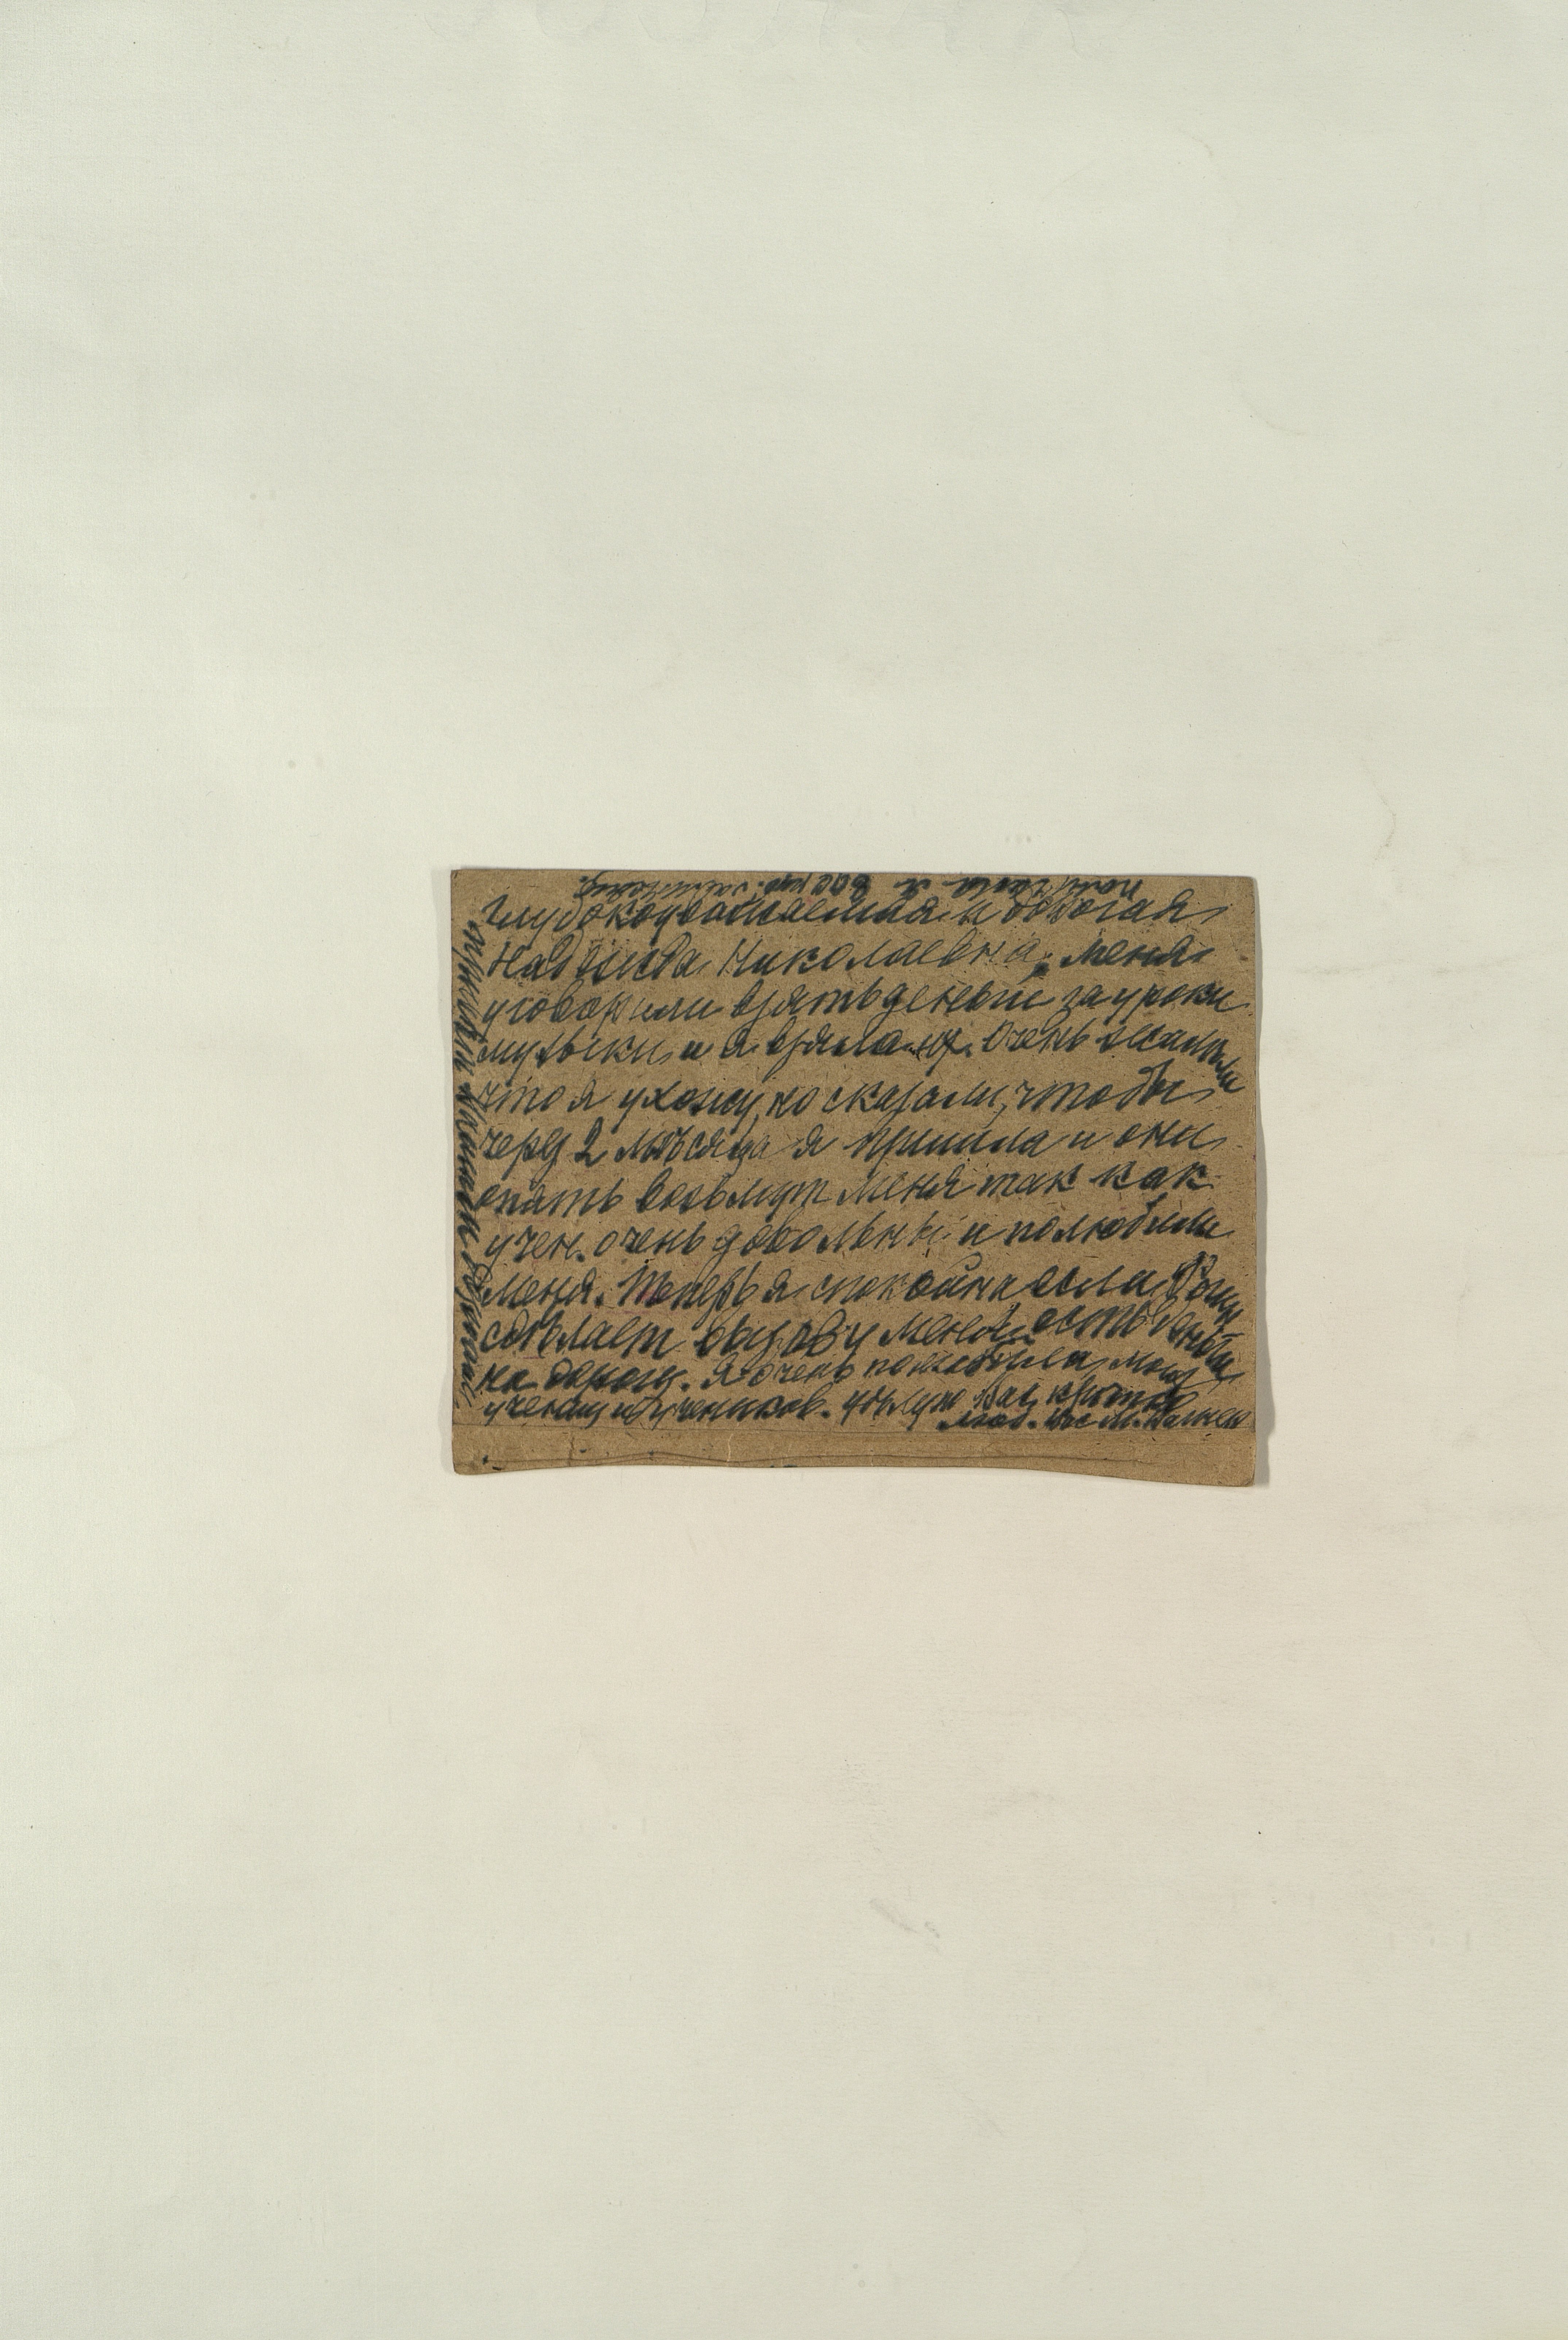 Глубокоуважаемая и дорогая
Надежда Николаевна, меня
уговорили взять деньги за уроки
музыки и я взяла их. Очень жалели
что я ухожу, но сказали, чтобы
через 2 мѣсяца я пришла и они
опять возьмут меня так как
учен. очень довольны и полюбили
меня. Теперь я спокойна если
сдѣлает вызов у меня есть деньги
на дорогу. Я очень полюбила моих
учениц и учеников. Цѣлую Вас крепко
люб. Вас М.
получила я 800 кр.